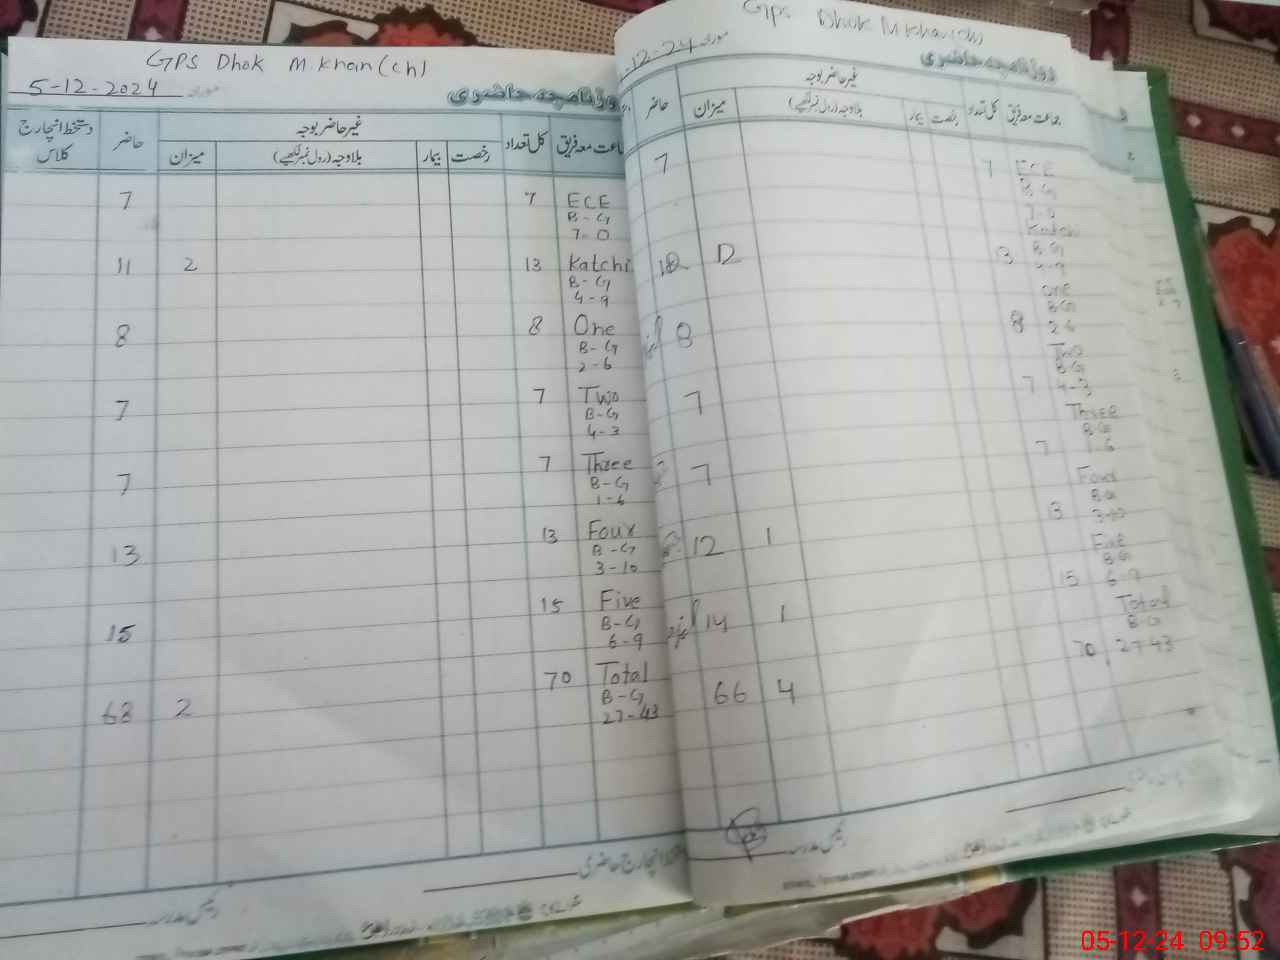 GPS Dhok M.khan (ch)
5-12-2024 مورخہ
روزنامچہ حاضری
جماعت معہ فریق کل تعداد غیر حاضر بوجہ حاضر دستخط انچارج کلاس
رخصت بیمار بلاوجہ (رول نمبر لکھیے) میزان
7 7 ECE
B-G
7-0
11 2 13 Katchi
B-G
4-9
8 8 One
B-G
2-6
7 7 Two
B-G
4-3
7 7 Three
B-G
1-6
13 13 Four
B-G
3-10
15 15 Five
B-G
6-9
68 2 70 Total
B-G
27-43
دستخط انچارج حاضری
رئیس مدرسہ
GPS Dhok M Khan (ch)
-12-24 مورخہ
روزنامچہ حاضری
جماعت معہ فریق کل تعداد غیر حاضر بوجہ حاضر
رخصت بیمار بلاوجہ (رول نمبر لکھیے) میزان
7 7 ECE
B-G
7-0
Katchi
13 B-G
4-9
One
B-G
8 8 2-6
Two
B-G
7 7 4-3
Three
B-G
7 7 1-6
Four
B-G
12 1 13 3-10
Five
B-G
14 1 15 6-9
Total
B-G
66 4 70 27-43
رئیس مدرسہ
05-12-24 09:52